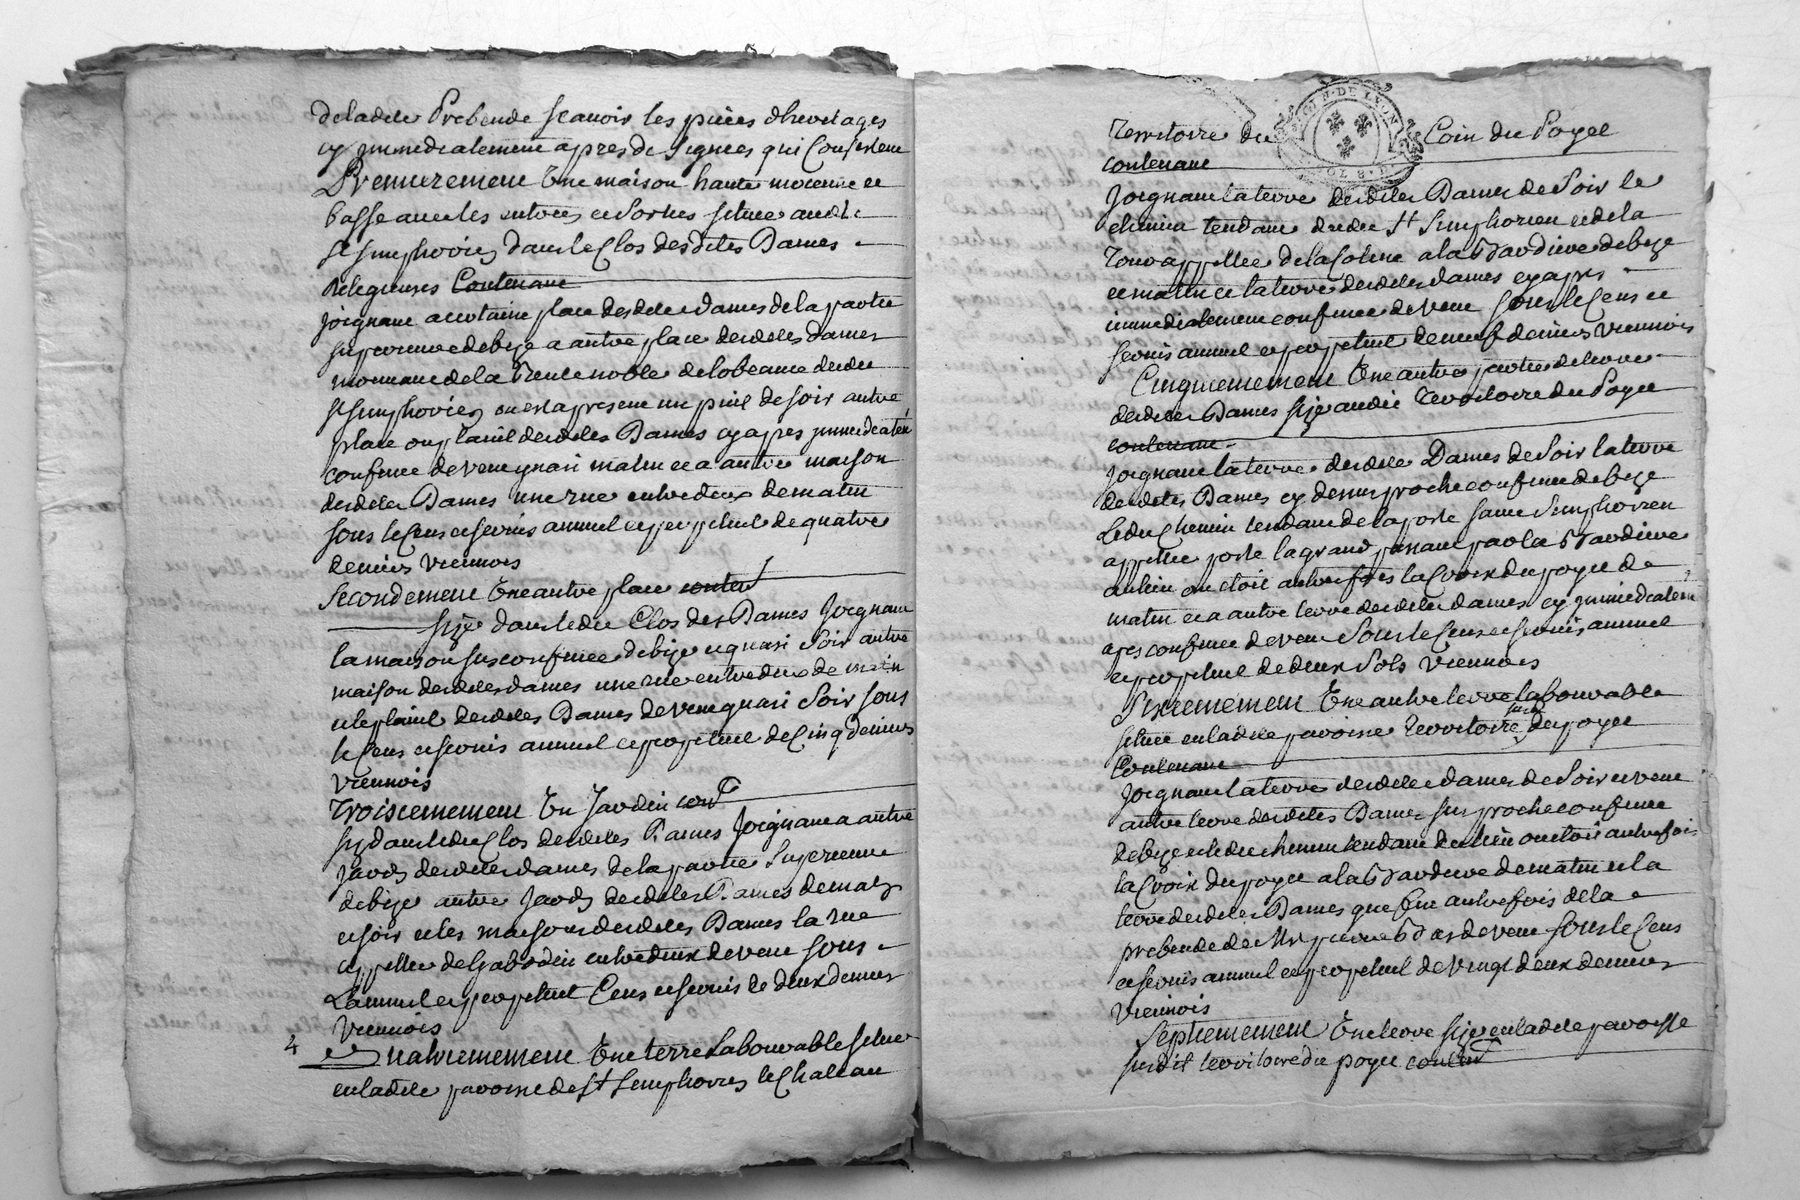 de lade Prebende scauoir les pieces dheritages
cy jmmediatement apres de signées qui consistent
Premierement Une maison haute moienne et
basse auec les entrées et sorties scituee audt
St Simphorien dans le Clos desdites Dames
Religieuses Contenant
joignant a certaine place desdites dames de la partie
superieure de bize a autre place desdites dames
mouuant de la rente noble de lobeance dudit
St Simphorien ou est a present un puit de soir autre
place ou plassit desdites Dames cy apres jmmediatemt
confinée de vent quasi matin et a autre maison
desdites Dames une rue entre deux de matin
sous le Cens et seruis annuel et perpetuel de quatre
deniers viennois
Secondement Une autre place content
size dans ledit Clos des Dames Joignant
la maison sus confinée de bize et quasi soir autre
maison desdites dames une rue entre deux de matin
et le plassit desdites Dames de vent quasi soir sous
le Cens et seruis annuel et perpetuel de Cinq deniers
viennois
Troisiemement Un Jardin cont
sis dans ledit Clos desdites Dames Joignant a autre
jardin desdites dames de la partie superieure
de bize autre jardin desdites Dames de matin
et soir et les maisons desdites Dames la rue
appellée de entre deux de vent sous
Lannuel et perpetuel Cens et seruis de deux deniers
Viennois
4 Quatriemement Une terre Labourable scituee
en ladite paroisse de St Simphorien le Chateau
Territoire du Coin du Poyet
contenant
joignant la terre desdites Dames de Soir le
chemin tendant dudit St Simphorien et de la
Tour appellée de la Coline a la Brardiere de bize
et matin et la terre desdites dames cy apres
immediatement confinée de vent sous le Cens et
seruis annuel et perpetuel de neuf deniers viennois
Cinquiemement Une autre partie de terre
desdites Dames size audit Territoire du Poyet
contenant
joignant la terre desdites Dames de Soir la terre
desdites Dames cy dessus proche confinée de bize
Ledit Chemin tendant de la porte Saint Simphorien
appellée porte la grand passant par la Brardiere
au lieu ou etoit autrefois la Croix du poyet de
matin et a autre terre desdites dames cy jmmediatemt
apres confinée de vent Sous le Cens et seruis annuel
et perpetuel de deux Sols viennois
Sixiemement Une autre terre labourable
scituee en ladite paroisse Territoire du poyet
Contenant
joignant la terre desdites dames de Soir et vent
autre terre desdites Dames sus proche confinée
de bize et ledit chemin tendant du lieu ou etoit autrefois
la Croix du poyet a la Brardiere de matin et la
terre desdites Dames que fut autrefois de la
prebende de Mre pierre de vent sous le Cens
et seruis annuel et perpetuel de vingt deux deniers
viennois
Septiemement Une terre size en ladite paroisse
susdit territoire du poyet content